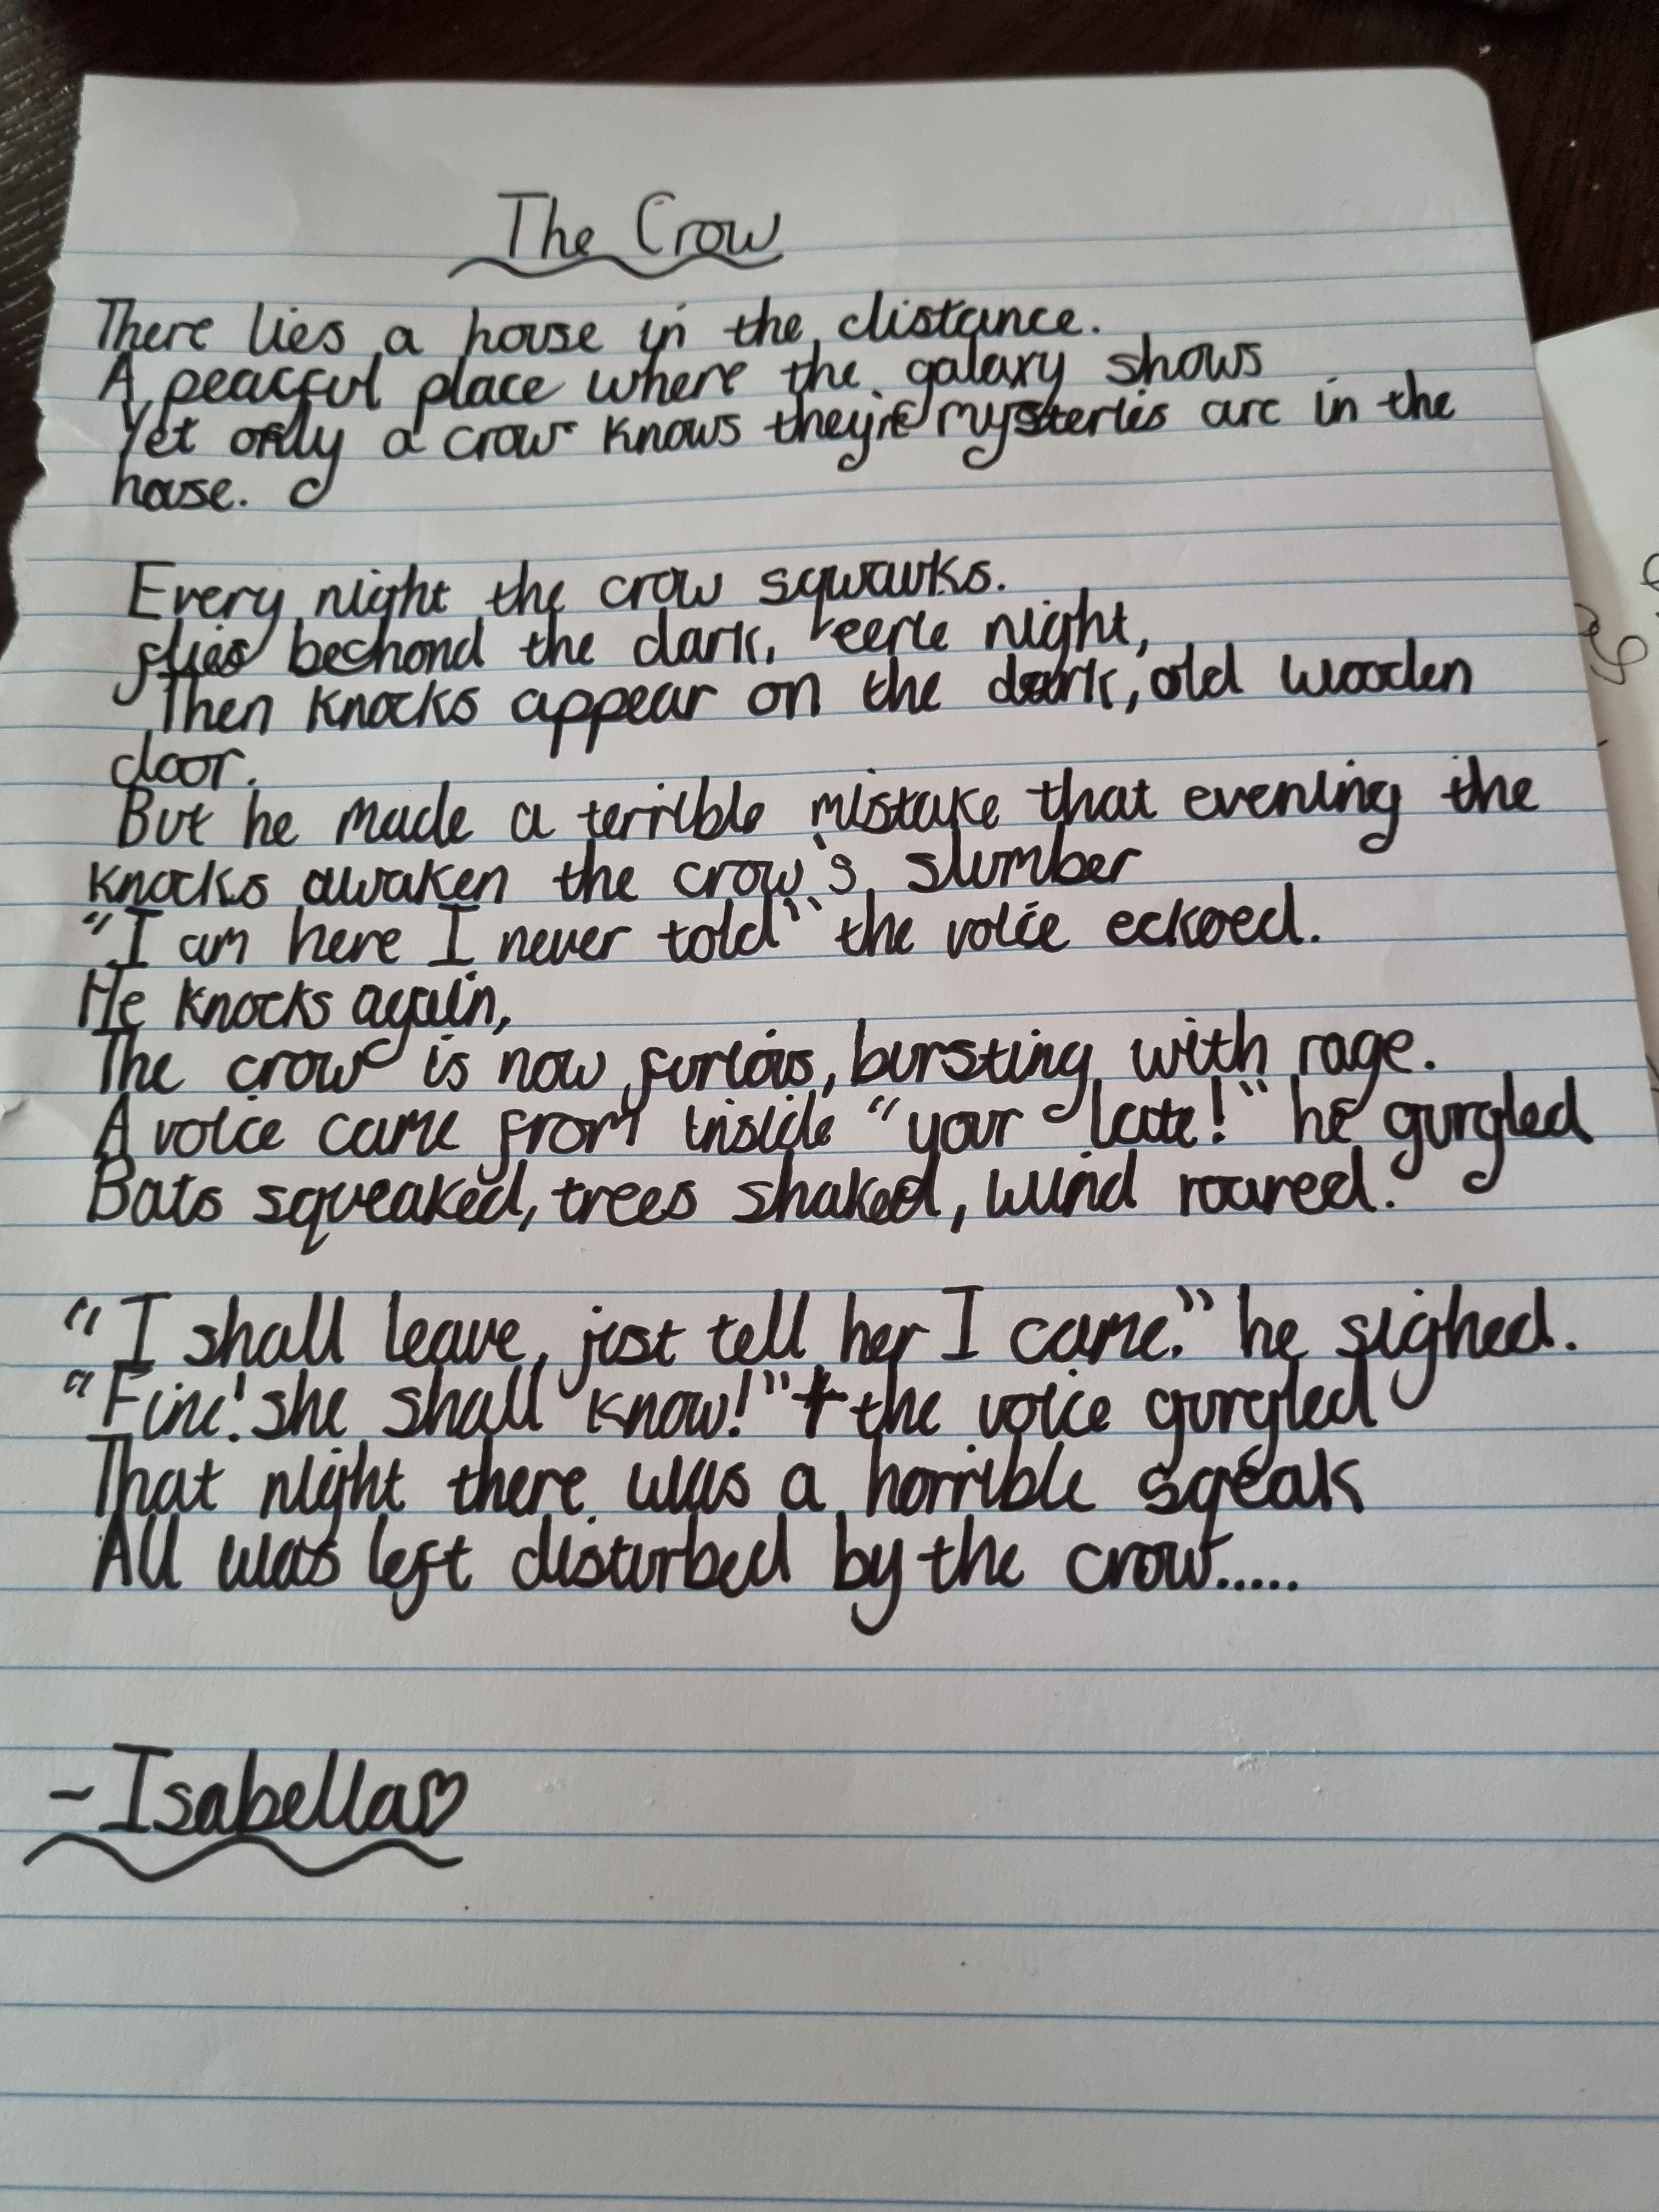 The Crow
There lies a house in the distance.
A peaceful place where the galaxy shows
Yet only a crow knows they're mysteries are in the
house.
Every night the crow squauks.
flies bechond the dark, eerie night,
Then knocks appear on the dark, old wooden
door.
But he made a terrible mistake that evening the
knocks awaken the crow's slumber
"I am here I never told" the voice eckoed.
He knocks again,
The crow is now furious, bursting with rage.
A voice came from inside "your late!" he gurgled
Bats squeaked, trees shaked, wind roared.
"I shall leave, just tell her I came." he sighed.
"Fine! she shall know!" the voice gurgled
That night there was a horrible sqeak
All was left disturbed by the crow.....
~Isabella♡